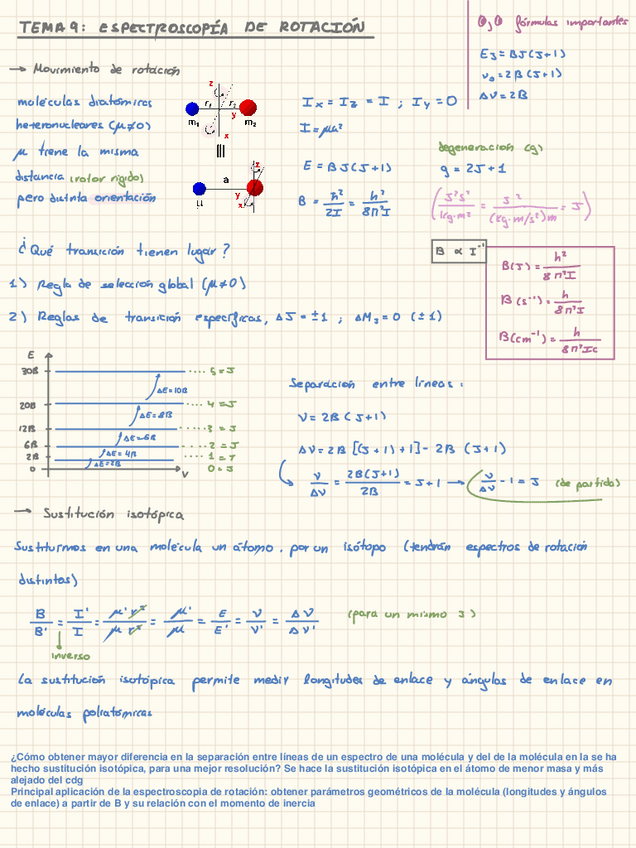 TEMA 9: ESPECTROSCOPÍA DE ROTACIÓN
fórmulas importantes
E_J = BJ(J+1)
ν₀ = 2B(J+1)
Δν = 2B
→ Movimiento de rotación
moléculas diatómicas
heteronucleares (μ≠0)
μ tiene la misma
distancia (rotor rígido)
pero distinta orientación
z
r₁ r₂
y
m₁ m₂
x
a
z
μ
y
x
I_x = I_z = I ; I_y = 0
I = μa²
E = BJ(J+1)
B = ħ²/2I = h²/8π²I
degeneración (g)
g = 2J+1
(J²s²/kg·m² = J²/(kg·m/s²)m = J)
B ∝ I⁻¹
B(J) = h²/8π²I
B(s⁻¹) = h/8π²I
B(cm⁻¹) = h/8π²Ic
¿Qué transición tienen lugar?
1) Regla de selección global (μ≠0)
2) Reglas de transición específicas, ΔJ = ±1 ; ΔM_J = 0 (±1)
E
30B 5 = J
ΔE=10B
20B 4 = J
ΔE=8B
12B 3 = J
ΔE=6B
6B 2 = J
ΔE=4B
2B 1 = J
ΔE=2B
0 0 = J
ν
Separación entre líneas:
ν = 2B(J+1)
Δν = 2B[(J+1)+1] - 2B(J+1)
ν/Δν = 2B(J+1)/2B = J+1 → ν/Δν - 1 = J (de partida)
→ Sustitución isotópica
Sustituimos en una molécula un átomo, por un isótopo (tendrán espectros de rotación
distintos)
B/B' = I'/I = μ'r²/μr² = μ'/μ = E/E' = ν/ν' = Δν/Δν' (para un mismo J)
inverso
La sustitución isotópica permite medir longitudes de enlace y ángulos de enlace en
moléculas poliatómicas
¿Cómo obtener mayor diferencia en la separación entre líneas de un espectro de una molécula y del de la molécula en la se ha
hecho sustitución isotópica, para una mejor resolución? Se hace la sustitución isotópica en el átomo de menor masa y más
alejado del cdg
Principal aplicación de la espectroscopia de rotación: obtener parámetros geométricos de la molécula (longitudes y ángulos
de enlace) a partir de B y su relación con el momento de inercia